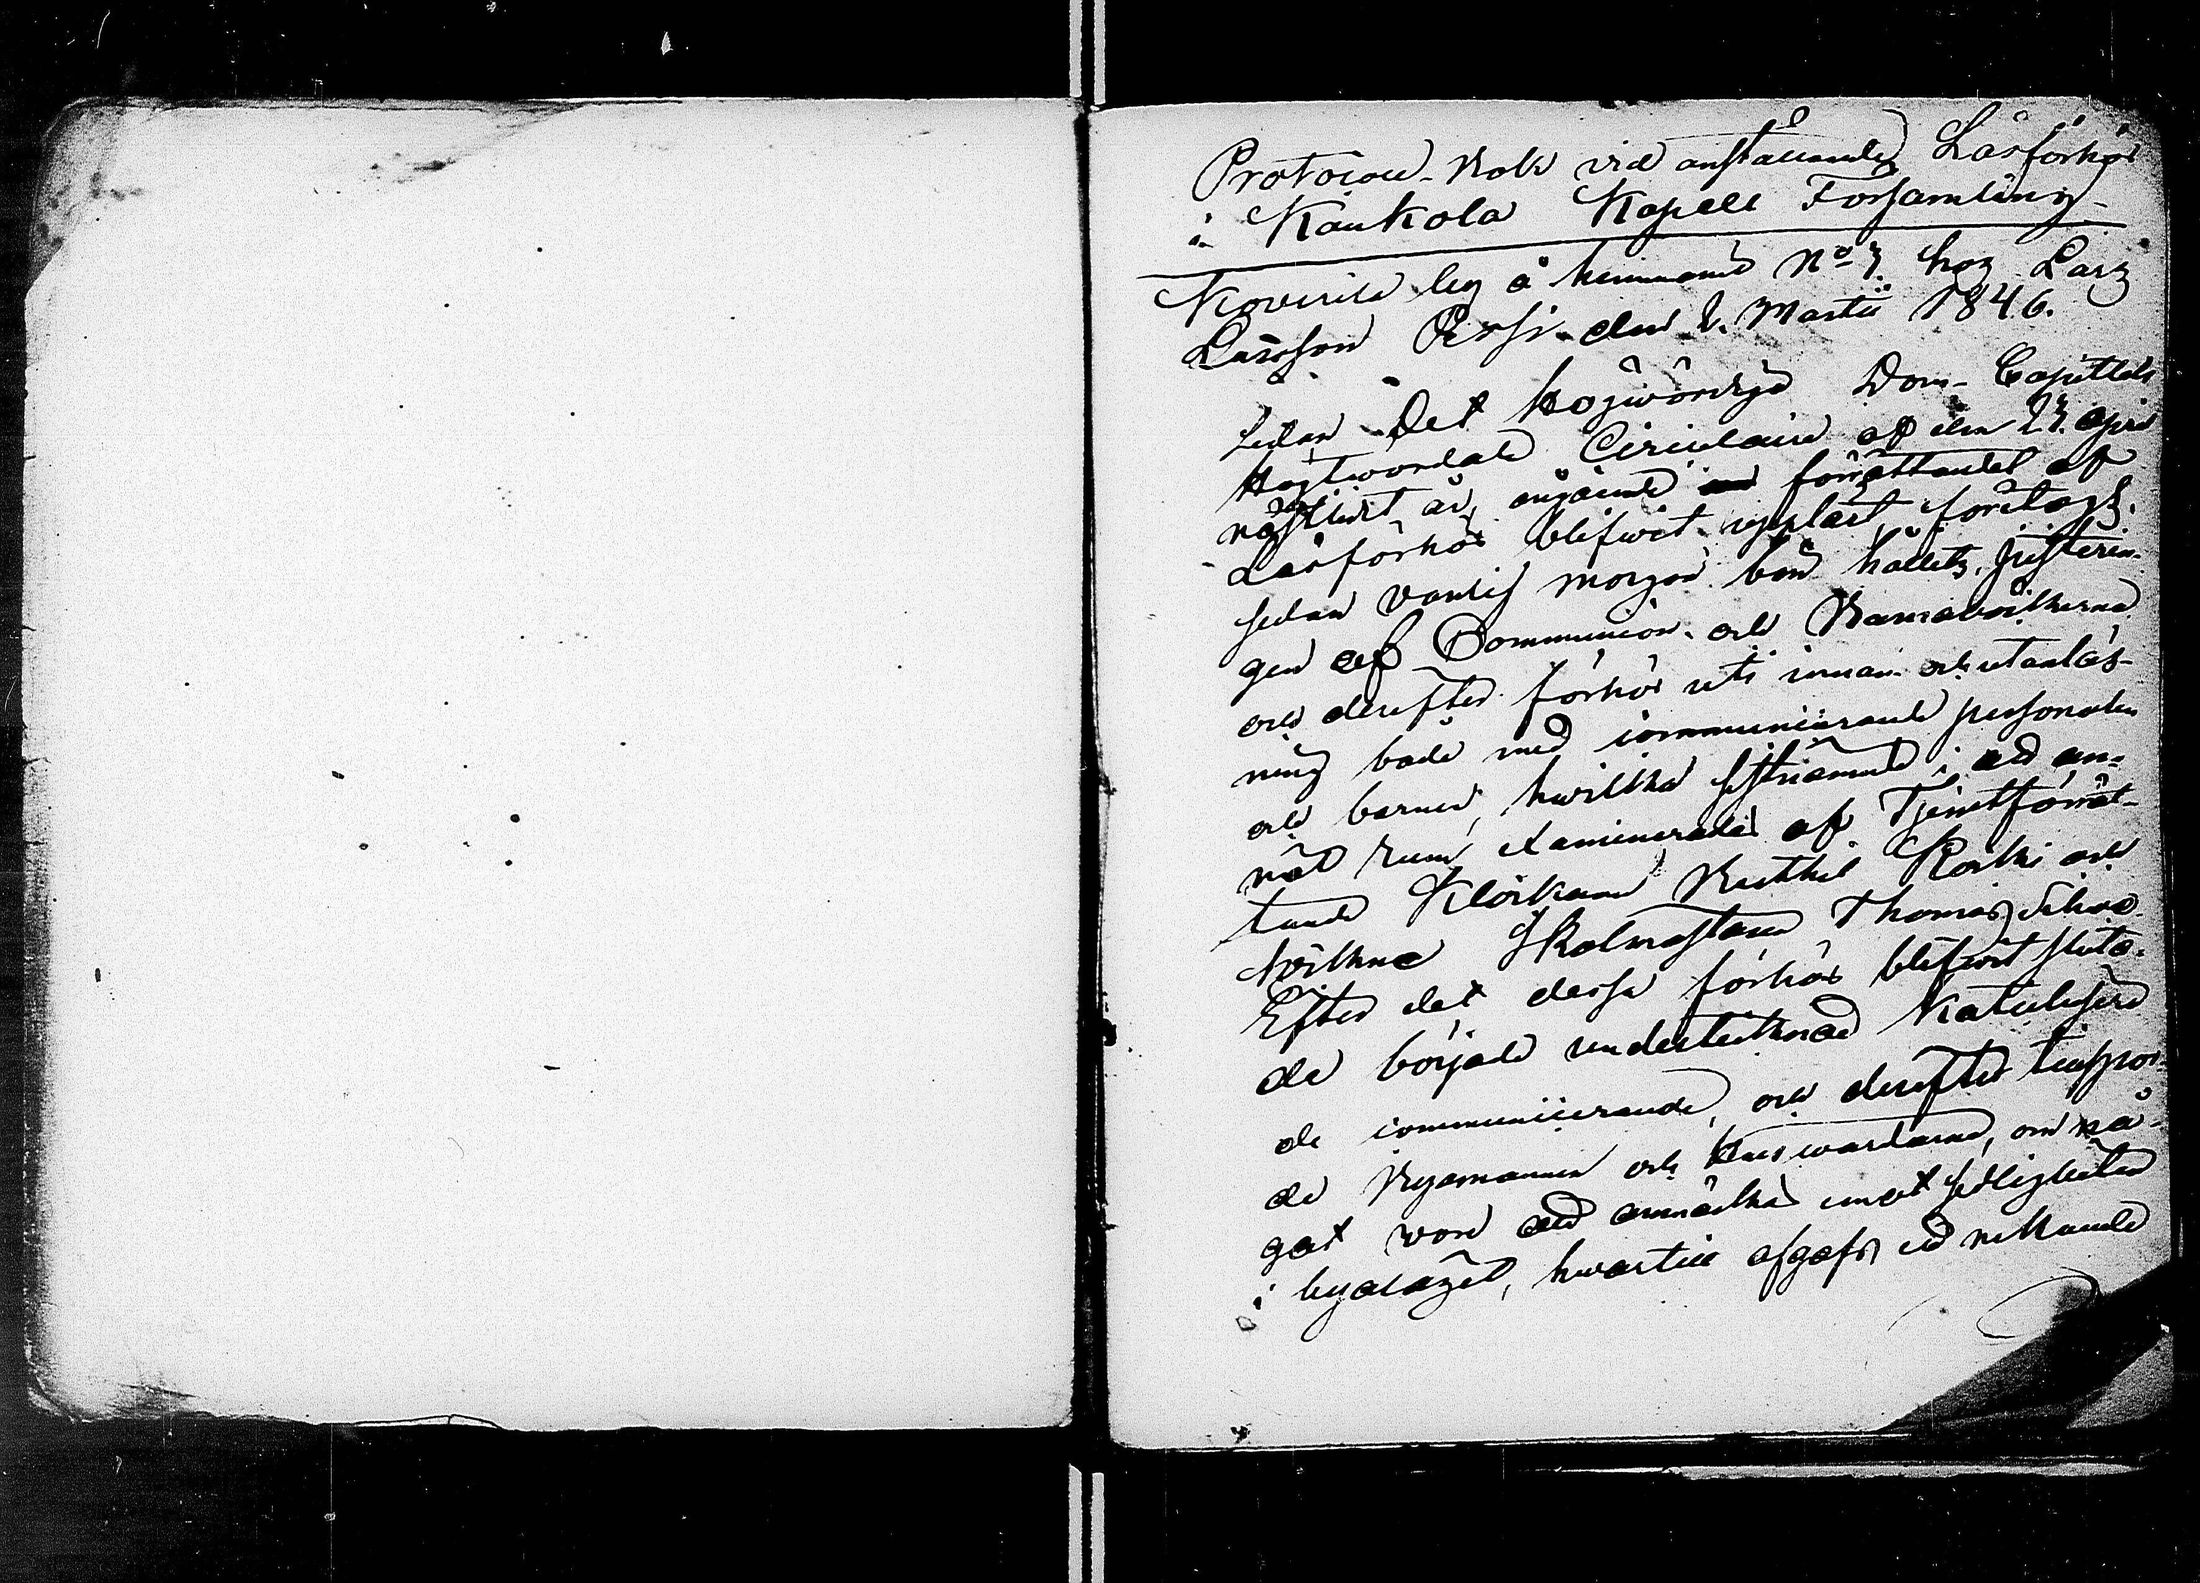 Protocoll-Bok vid anställande Läsförhör
i Kaukola Kapell Församling
by å hemmanet No 7. hos Lars
Larsson den 2. Martii 1846.
Sedan Det Högwördiga Dom-Capitlets
Högtwördade Circulaire af den 23. april
nästledet år, angående förrättandet af
Läsförhör blifwit uppläst, företogs,
sedan vanlig morgon bön hållits, justerin-
gen af Communion- och Barnaböckerna
och derefter förhör uti innan- och utanläs-
ning både med communicerande personalen
och barnen, hwilka sistnämnde i ett an-
nat rum examinerades af Tjenstförrät-
tande Klockaren Koski och
Skolmästaren Thomas
Efter det dessa förhör blifwit sluta-
de började undertecknad Katechisera
de communicerande, och derefter tillspor-
de Byamännen och Huswärdarne, om nå-
got wore att anmärka emot sedligheten
i byalaget, hwartill afgafs ett nekande